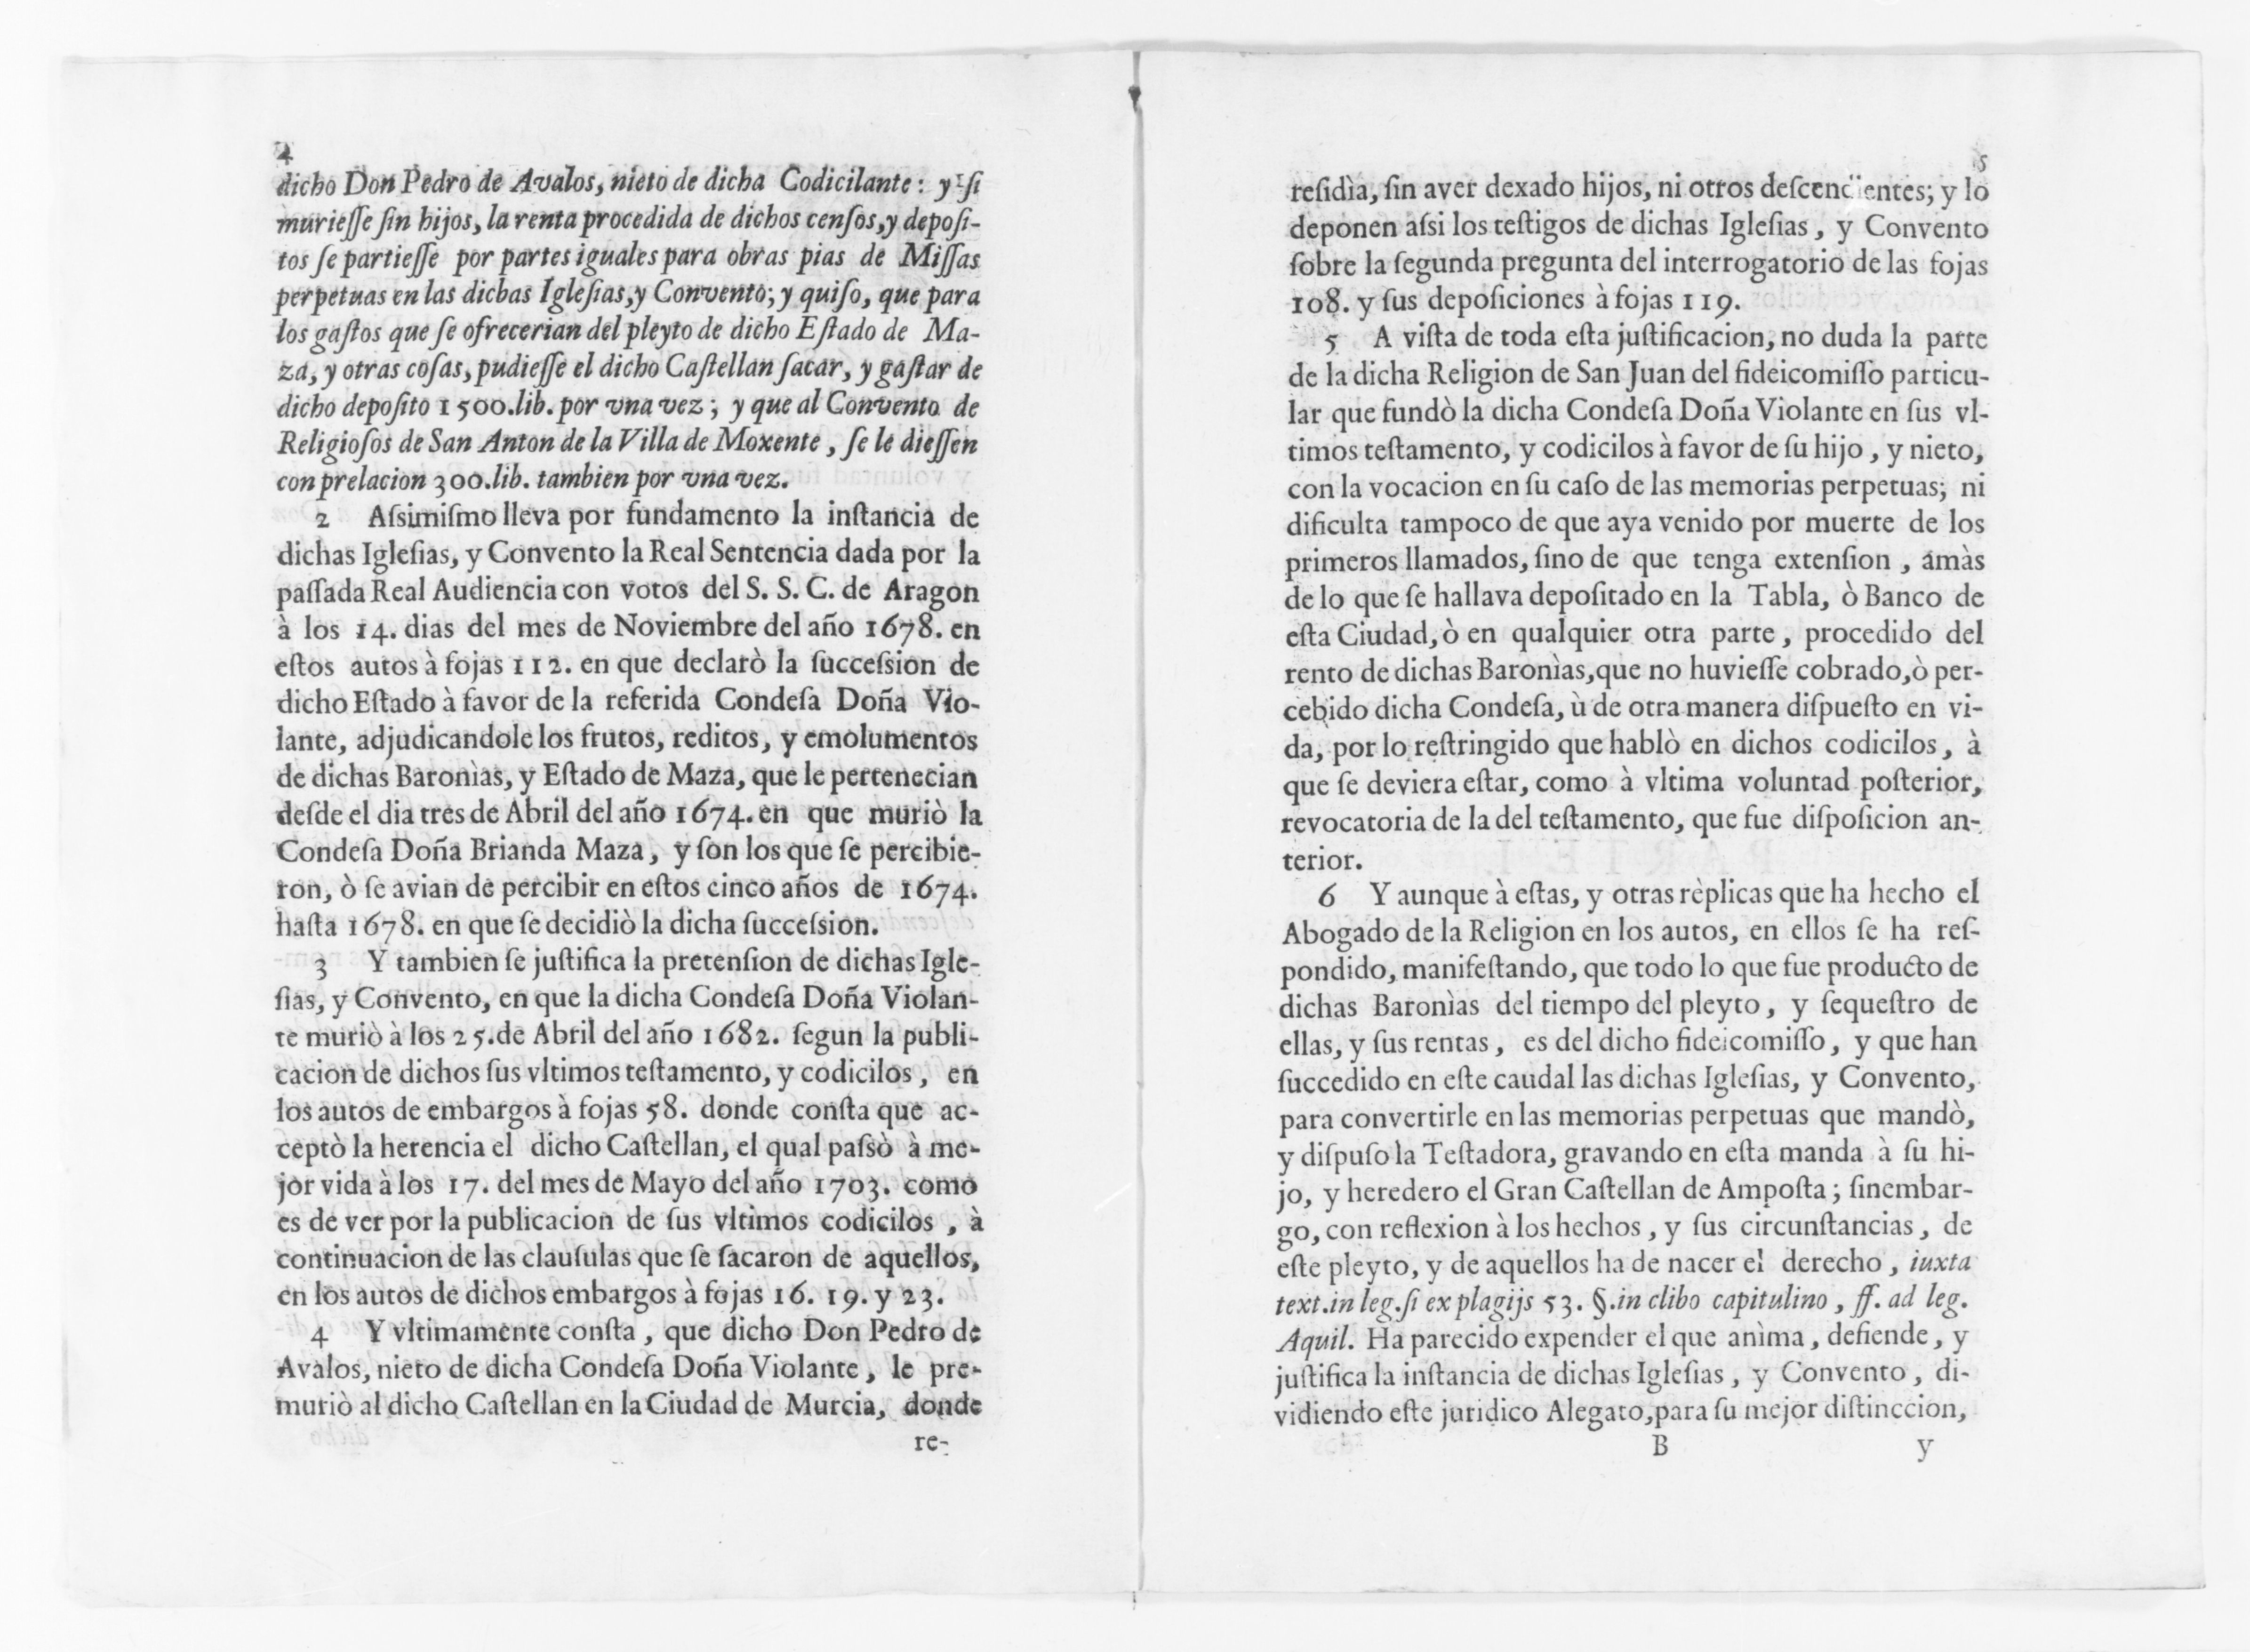 4
dicho Don Pedro de Avalos, nieto de dicha Codicilante: y ſi
murieſſe ſin hijos, la renta procedida de dichos cenſos, y depoſi-
tos ſe partieſſe por partes iguales para obras pias de Miſſas
perpetuas en las dichas Igleſias, y Convento; y quiſo, que para
los gaſtos que ſe ofrecerian del pleyto de dicho Eſtado de Ma-
za, y otras coſas, pudieſſe el dicho Caſtellan ſacar, y gaſtar de
dicho depoſito 1500. lib. por vna vez; y que al Convento de
Religioſos de San Anton de la Villa de Moxente, ſe le dieſſen
con prelacion 300. lib. tambien por vna vez.
2 Aſsimiſmo lleva por fundamento la inſtancia de
dichas Igleſias, y Convento la Real Sentencia dada por la
paſſada Real Audiencia con votos del S. S. C. de Aragon
à los 14. dias del mes de Noviembre del año 1678. en
eſtos autos à fojas 112. en que declarò la ſucceſsion de
dicho Eſtado à favor de la referida Condeſa Doña Vio-
lante, adjudicandole los frutos, reditos, y emolumentos
de dichas Baronìas, y Eſtado de Maza, que le pertenecian
deſde el dia tres de Abril del año 1674. en que muriò la
Condeſa Doña Brianda Maza, y ſon los que ſe percibie-
ron, ò ſe avian de percibir en eſtos cinco años de 1674.
haſta 1678. en que ſe decidiò la dicha ſucceſsion.
3 Y tambien ſe juſtifica la pretenſion de dichas Igle-
ſias, y Convento, en que la dicha Condeſa Doña Violan-
te muriò à los 25. de Abril del año 1682. ſegun la publi-
cacion de dichos ſus vltimos teſtamento, y codicilos, en
los autos de embargos à fojas 58. donde conſta que ac-
ceptò la herencia el dicho Caſtellan, el qual paſsò à me-
jor vida à los 17. del mes de Mayo del año 1703. como
es de ver por la publicacion de ſus vltimos codicilos, à
continuacion de las clauſulas que ſe ſacaron de aquellos,
en los autos de dichos embargos à fojas 16. 19. y 23.
4 Y vltimamente conſta, que dicho Don Pedro de
Avalos, nieto de dicha Condeſa Doña Violante, le pre-
muriò al dicho Caſtellan en la Ciudad de Murcia, donde
re-
5
reſidìa, ſin aver dexado hijos, ni otros deſcendientes; y lo
deponen aſsi los teſtigos de dichas Igleſias, y Convento
ſobre la ſegunda pregunta del interrogatorio de las fojas
108. y ſus depoſiciones à fojas 119.
5 A viſta de toda eſta juſtificacion, no duda la parte
de la dicha Religion de San Juan del fideicomiſſo particu-
lar que fundò la dicha Condeſa Doña Violante en ſus vl-
timos teſtamento, y codicilos à favor de ſu hijo, y nieto,
con la vocacion en ſu caſo de las memorias perpetuas; ni
dificulta tampoco de que aya venido por muerte de los
primeros llamados, ſino de que tenga extenſion, amàs
de lo que ſe hallava depoſitado en la Tabla, ò Banco de
eſta Ciudad, ò en qualquier otra parte, procedido del
rento de dichas Baronìas, que no huvieſſe cobrado, ò per-
cebido dicha Condeſa, ù de otra manera diſpueſto en vi-
da, por lo reſtringido que hablò en dichos codicilos, à
que ſe deviera eſtar, como à vltima voluntad poſterior,
revocatoria de la del teſtamento, que fue diſpoſicion an-
terior.
6 Y aunque à eſtas, y otras rèplicas que ha hecho el
Abogado de la Religion en los autos, en ellos ſe ha reſ-
pondido, manifeſtando, que todo lo que fue producto de
dichas Baronìas del tiempo del pleyto, y ſequeſtro de
ellas, y ſus rentas, es del dicho fideicomiſſo, y que han
ſuccedido en eſte caudal las dichas Igleſias, y Convento,
para convertirle en las memorias perpetuas que mandò,
y diſpuſo la Teſtadora, gravando en eſta manda à ſu hi-
jo, y heredero el Gran Caſtellan de Ampoſta; ſinembar-
go, con reflexion à los hechos, y ſus circunſtancias, de
eſte pleyto, y de aquellos ha de nacer el derecho, iuxta
text. in leg. ſi ex plagijs 53. §. in clibo capitulino, ff. ad leg.
Aquil. Ha parecido expender el que anìma, defiende, y
juſtifica la inſtancia de dichas Igleſias, y Convento, di-
vidiendo eſte juridico Alegato, para ſu mejor diſtinccion,
B y